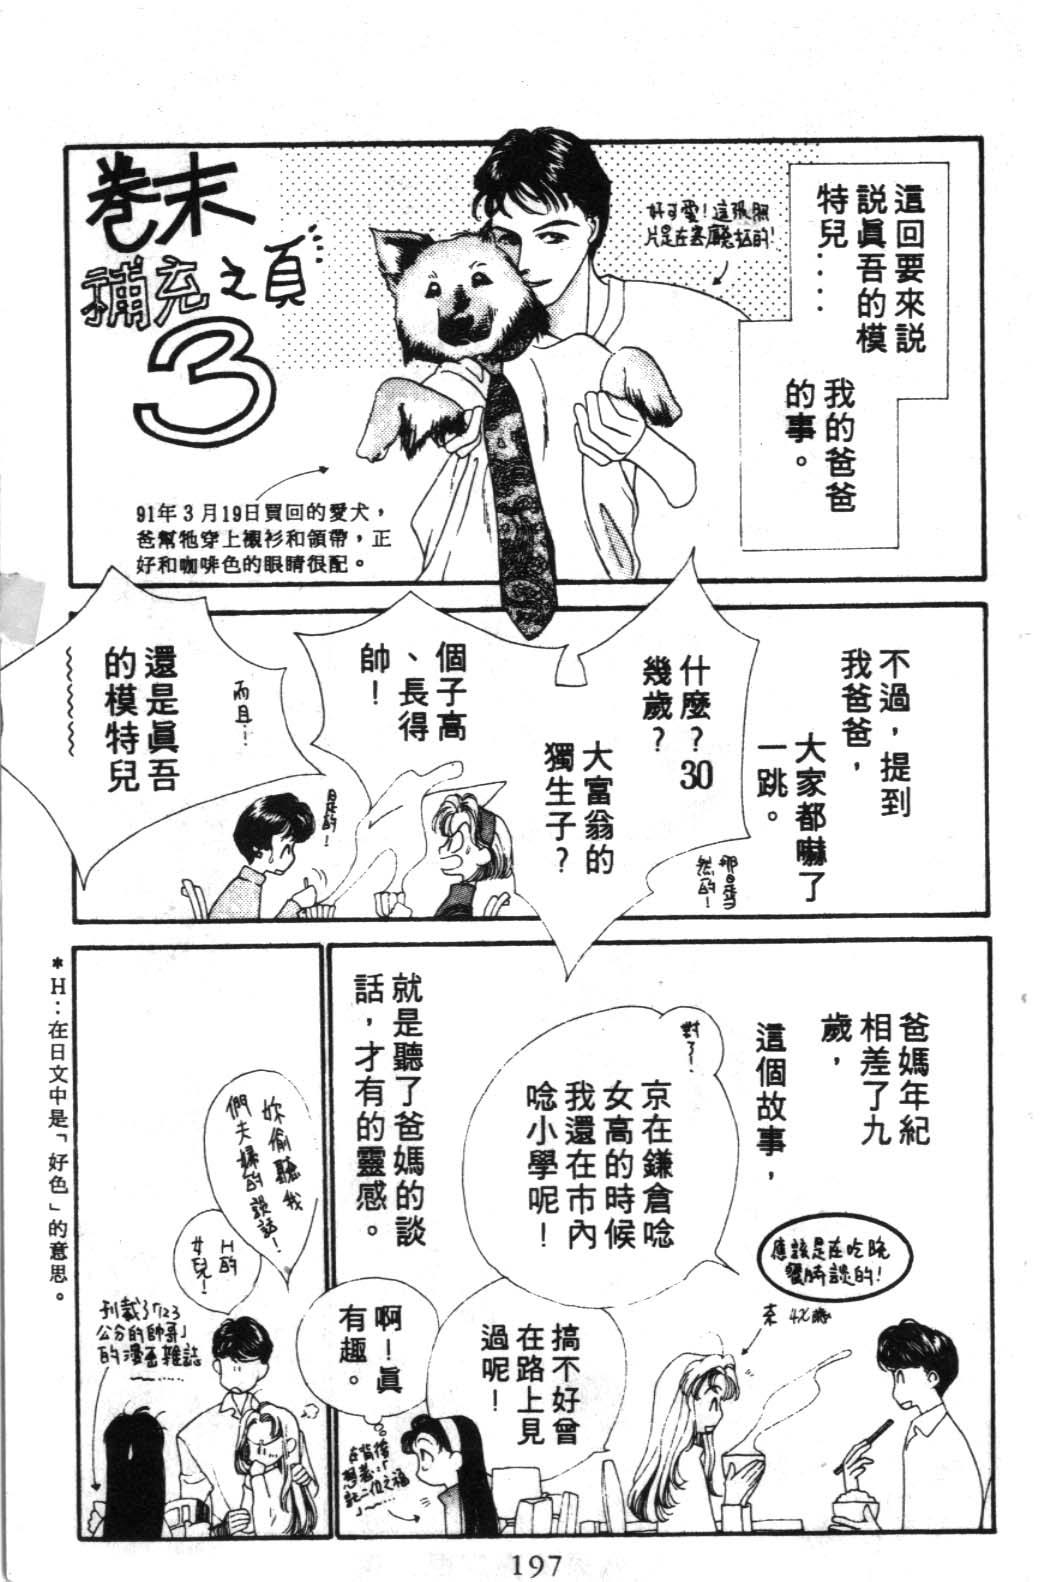 卷末
補充之頁
3
這回要來説
説眞吾的模
特兒……
我的爸爸
的事。
好可愛！這張照
片是在塞席爾拍的！
91年3月19日買回的愛犬，
爸幫牠穿上襯衫和領帶，正
好和咖啡色的眼睛很配。
不過，提到
我爸爸，
大家都嚇了
一跳。
那是當
然的！
什麼？30
幾歲？
大富翁的
獨生子？
個子高
、長得
帥！
是的！
而且…
還是眞吾
的模特兒
爸媽年紀
相差了九
歲，
這個故事，
對了！
京在鎌倉唸
女高的時候
我還在市內
唸小學呢！
就是聽了爸媽的談
話，才有的靈感。
應該是在吃晚
餐時談的！
京 4X歲
搞不好曾
在路上見
過呢！
啊！眞
有趣。
在背後
想著…「
記二位之福
」
妳偷聽我
們夫婦的談話！
H的
女兒！
刊載了「123
公分的帥哥」
的漫画雜誌
＊H：在日文中是「好色」的意思。
197